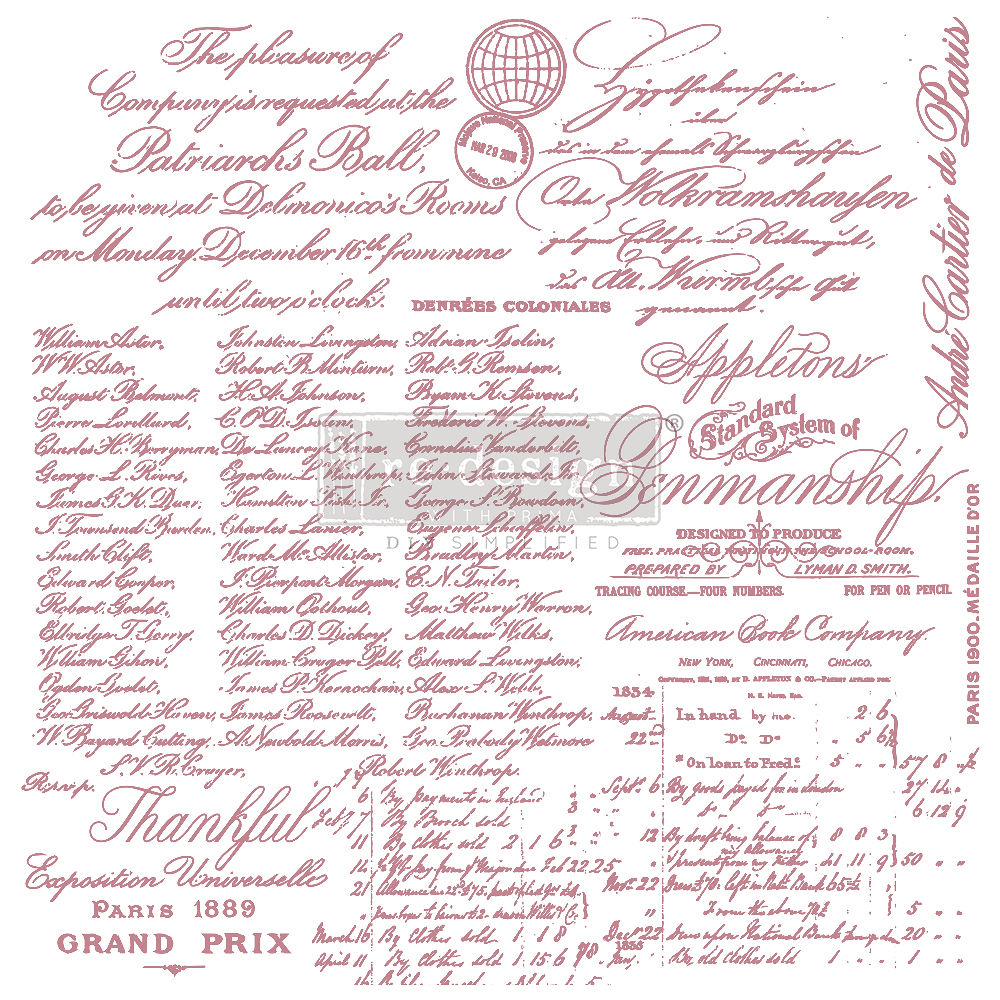 The pleasure of
Company is requested at the
Patriarchs Ball,
to be given at Delmonico's Rooms
on Monday. December 16th from nine
until two o'clock.
Mojave National Preserve
MAR 29 2008
Kelso, CA
Hypothekenschein
über
das in dem ehemals Schwarzburgschen
Orte Wolkramshausen
gelegene Erblehn- und Rittergut,
das Alt. Wurmb'sche Gut
genannt.
André Cartier de Paris
DENRÉES COLONIALES
William Astor, Johnston Livingston, Adrian Iselin,
W.W. Astor, Robert B. Minturn, Robt. G. Remsen,
August Belmont, H.A. Johnson, Byam K. Stevens,
Pierre Lorillard, C.O'D. Iselin, Frederic W. Stevens,
Charles H. Berryman, De Lancey Kane, Cornelius Vanderbilt,
George L. Rives, Egerton L.
James G.K. Duer, Hamilton George S. Bowdoin,
J. Townsend Burden, Charles Lanier, Eugene Schieffelin,
Smith Clift, Ward McAllister, Bradley Martin,
Edward Cooper, J. Pierpont Morgan, E.N. Tailer,
Robert Goelet, William Oothout, Geo. Henry Warren,
Elbridge T. Gerry, Charles D. Dickey, Matthew Wilks,
William Gihon, William Cruger Pell, Edward Livingston,
Ogden Goelet, James P. Kernochan, Alex. S. Webb,
Geo. Griswold Haven, James Roosevelt, Buchanan Winthrop,
W. Bayard Cutting, A. Newbold Morris, Geo. Peabody Wetmore
S.V.R. Cruger, Robert Winthrop.
R.s.v.p.
re·design®
WITH PRIMA
DIY SIMPLIFIED
Appletons'
Standard System of
Penmanship.
DESIGNED TO PRODUCE
FREE, PRACTICAL SCHOOL-ROOM.
PREPARED BY LYMAN D. SMITH.
TRACING COURSE.—FOUR NUMBERS. FOR PEN OR PENCIL
American Book Company.
NEW YORK, CINCINNATI, CHICAGO.
BY D. APPLETON & CO.—PATENT APPLIED FOR.
PARIS 1900.MÉDAILLE D'OR
1834
August In hand by me 2 6
22nd Do Do " 5 6½
" On loan to Fred. 5 " " 57 8 "½
Septr. 6 By goods payed for in london 27 14 "
6 12 9
12 By draft being balance of 8 8 3
my allowance
" present from my Father 41 11 9 50 " "
Novr. 22
5 " "
Decr. 22 20 " "
1835
Jany. By old clothes sold 1 " "
Thankful
Exposition Universelle
PARIS 1889
GRAND PRIX
6 By payments in England
Feby. 7 By Brooch sold
11 By clothes sold 2 1 6
14
21
March 16 By Clothes sold 1 1 8
April 11 By Clothes sold 1 15 6